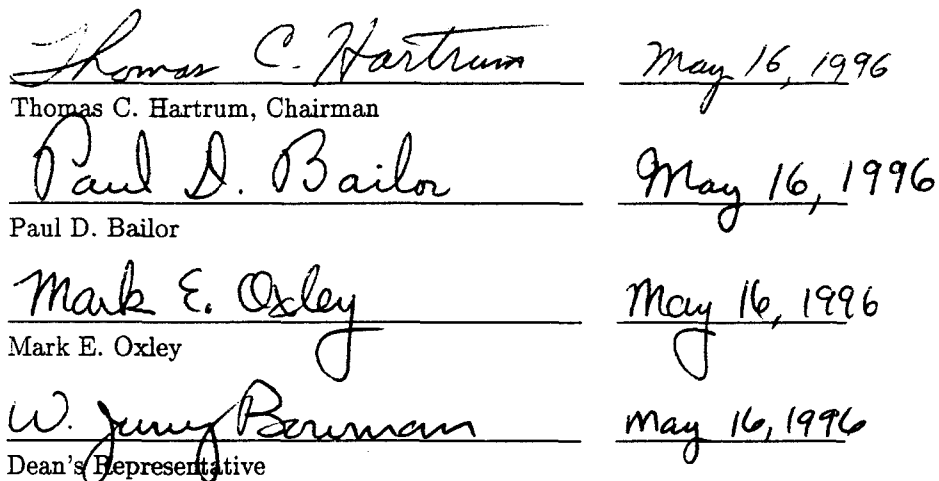 Thomas C. Hartrum May 16, 1996
Thomas C. Hartrum, Chairman
Paul D. Bailor May 16, 1996
Paul D. Bailor
Mark E. Oxley May 16, 1996
Mark E. Oxley
W. Jerry Bowman May 16, 1996
Dean's Representative